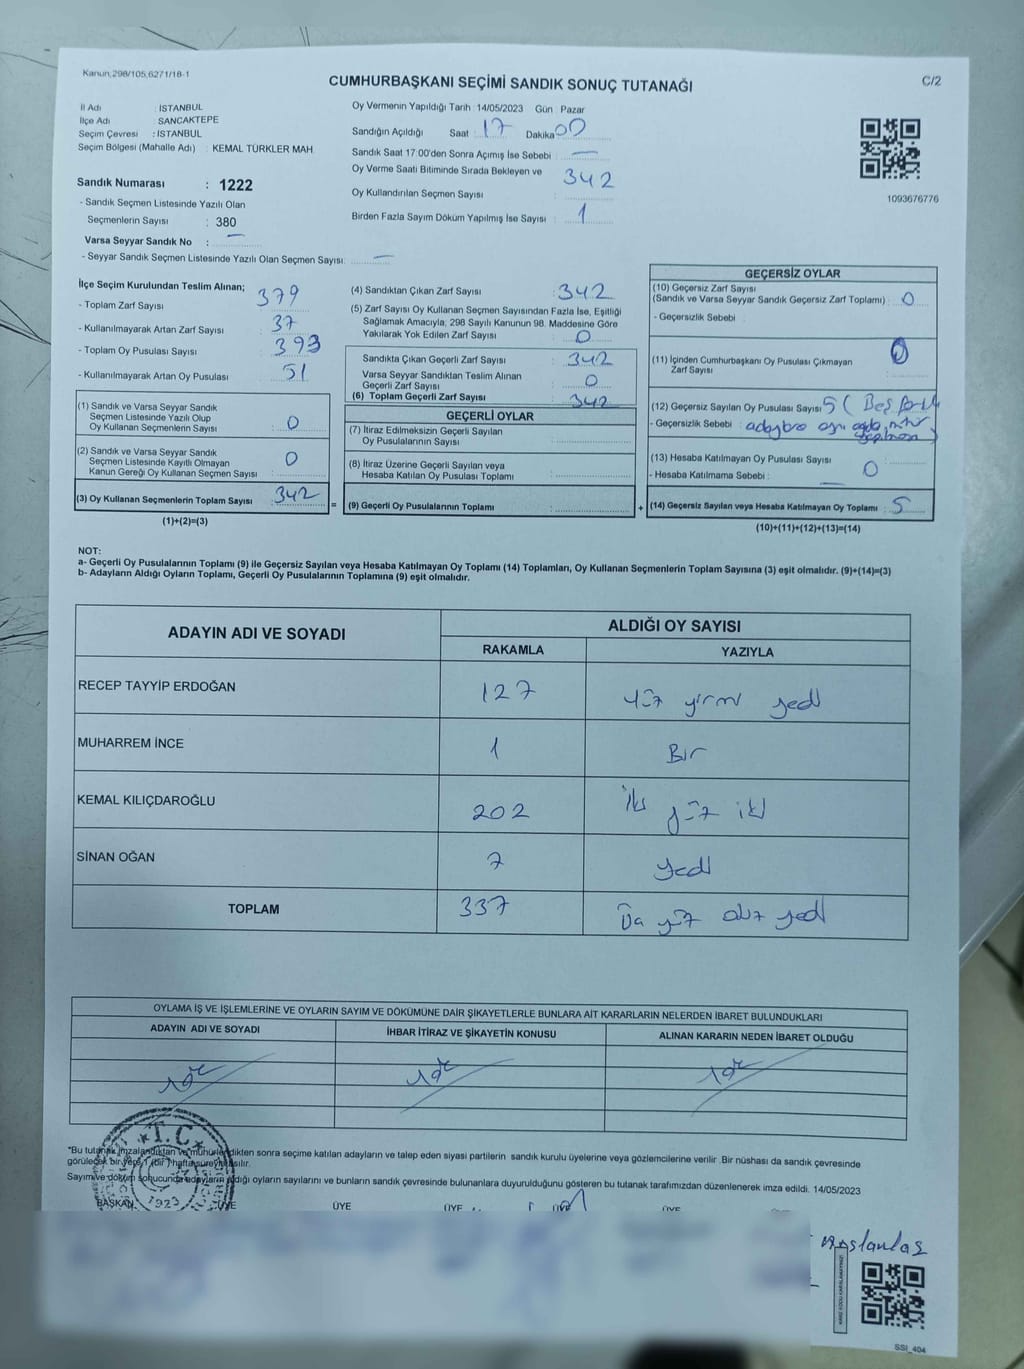 Kanun,298/105,6271/18-1
CUMHURBAŞKANI SEÇİMİ SANDIK SONUÇ TUTANAĞI
C/2
İl Adı : İSTANBUL
İlçe Adı SANCAKTEPE
Seçim Çevresi : İSTANBUL
Seçim Bölgesi (Mahalle Adı) : KEMAL TÜRKLER MAH.
Sandık Numarası : 1222
- Sandık Seçmen Listesinde Yazılı Olan
Seçmenlerin Sayısı : 380
Varsa Seyyar Sandık No : —
- Seyyar Sandık Seçmen Listesinde Yazılı Olan Seçmen Sayısı: —
Oy Vermenin Yapıldığı Tarih : 14/05/2023 Gün : Pazar
Sandığın Açıldığı Saat : 17 Dakika 00
Sandık Saat 17:00'den Sonra Açımış İse Sebebi : —
Oy Verme Saati Bitiminde Sırada Bekleyen ve 342
Oy Kullandırılan Seçmen Sayısı :
Birden Fazla Sayım Döküm Yapılmış İse Sayısı : 1
1093676776
İlçe Seçim Kurulundan Teslim Alınan;
- Toplam Zarf Sayısı 379
- Kullanılmayarak Artan Zarf Sayısı : 37
- Toplam Oy Pusulası Sayısı : 393
- Kullanılmayarak Artan Oy Pusulası : 51
(1) Sandık ve Varsa Seyyar Sandık
Seçmen Listesinde Yazılı Olup
Oy Kullanan Seçmenlerin Sayısı : 0
(2) Sandık ve Varsa Seyyar Sandık
Seçmen Listesinde Kayıtlı Olmayan
Kanun Gereği Oy Kullanan Seçmen Sayısı : 0
(3) Oy Kullanan Seçmenlerin Toplam Sayısı : 342
(1)+(2)=(3)
=
(4) Sandıktan Çıkan Zarf Sayısı : 342
(5) Zarf Sayısı Oy Kullanan Seçmen Sayısından Fazla İse, Eşitliği
Sağlamak Amacıyla; 298 Sayılı Kanunun 98. Maddesine Göre
Yakılarak Yok Edilen Zarf Sayısı : 0
Sandıkta Çıkan Geçerli Zarf Sayısı : 342
Varsa Seyyar Sandıktan Teslim Alınan
Geçerli Zarf Sayısı : 0
(6) Toplam Geçerli Zarf Sayısı : 342
GEÇERLİ OYLAR
(7) İtiraz Edilmeksizin Geçerli Sayılan
Oy Pusulalarının Sayısı :
(8) İtiraz Üzerine Geçerli Sayılan veya
Hesaba Katılan Oy Pusulası Toplamı :
(9) Geçerli Oy Pusulalarının Toplamı :
+
GEÇERSİZ OYLAR
(10) Geçersiz Zarf Sayısı
(Sandık ve Varsa Seyyar Sandık Geçersiz Zarf Toplamı) : 0
- Geçersizlik Sebebi :
(11) İçinden Cumhurbaşkanı Oy Pusulası Çıkmayan 0
Zarf Sayısı :
(12) Geçersiz Sayılan Oy Pusulası Sayısı : 5 ( Beş
- Geçersizlik Sebebi :
(13) Hesaba Katılmayan Oy Pusulası Sayısı : 0
- Hesaba Katılmama Sebebi : —
(14) Geçersiz Sayılan veya Hesaba Katılmayan Oy Toplamı : 5
(10)+(11)+(12)+(13)=(14)
NOT:
a- Geçerli Oy Pusulalarının Toplamı (9) ile Geçersiz Sayılan veya Hesaba Katılmayan Oy Toplamı (14) Toplamları, Oy Kullanan Seçmenlerin Toplam Sayısına (3) eşit olmalıdır. (9)+(14)=(3)
b- Adayların Aldığı Oyların Toplamı, Geçerli Oy Pusulalarının Toplamına (9) eşit olmalıdır.
ADAYIN ADI VE SOYADI
ALDIĞI OY SAYISI
RAKAMLA YAZIYLA
RECEP TAYYİP ERDOĞAN 127 yüz yirmi yedi
MUHARREM İNCE 1 Bir
KEMAL KILIÇDAROĞLU 202 iki yüz iki
SİNAN OĞAN 7 yedi
TOPLAM 337 Üç yüz otuz yedi
OYLAMA İŞ VE İŞLEMLERİNE VE OYLARIN SAYIM VE DÖKÜMÜNE DAİR ŞİKAYETLERLE BUNLARA AİT KARARLARIN NELERDEN İBARET BULUNDUKLARI
ADAYIN ADI VE SOYADI İHBAR İTİRAZ VE ŞİKAYETİN KONUSU ALINAN KARARIN NEDEN İBARET OLDUĞU
yok yok yok
T.C
1923
*Bu tutanak imzalandıktan ve mühürlendikten sonra seçime katılan adayların ve talep eden siyasi partilerin sandık kurulu üyelerine veya gözlemcilerine verilir .Bir nüshası da sandık çevresinde
görülecek bir yere 1 (bir ) hafta süreyle asılır.
Sayım ve döküm sonucunda adayların aldığı oyların sayılarını ve bunların sandık çevresinde bulunanlara duyurulduğunu gösteren bu tutanak tarafımızdan düzenlenerek imza edildi. 14/05/2023
BAŞKAN ÜYE ÜYE ÜYE ÜYE ÜYE
SSI_404